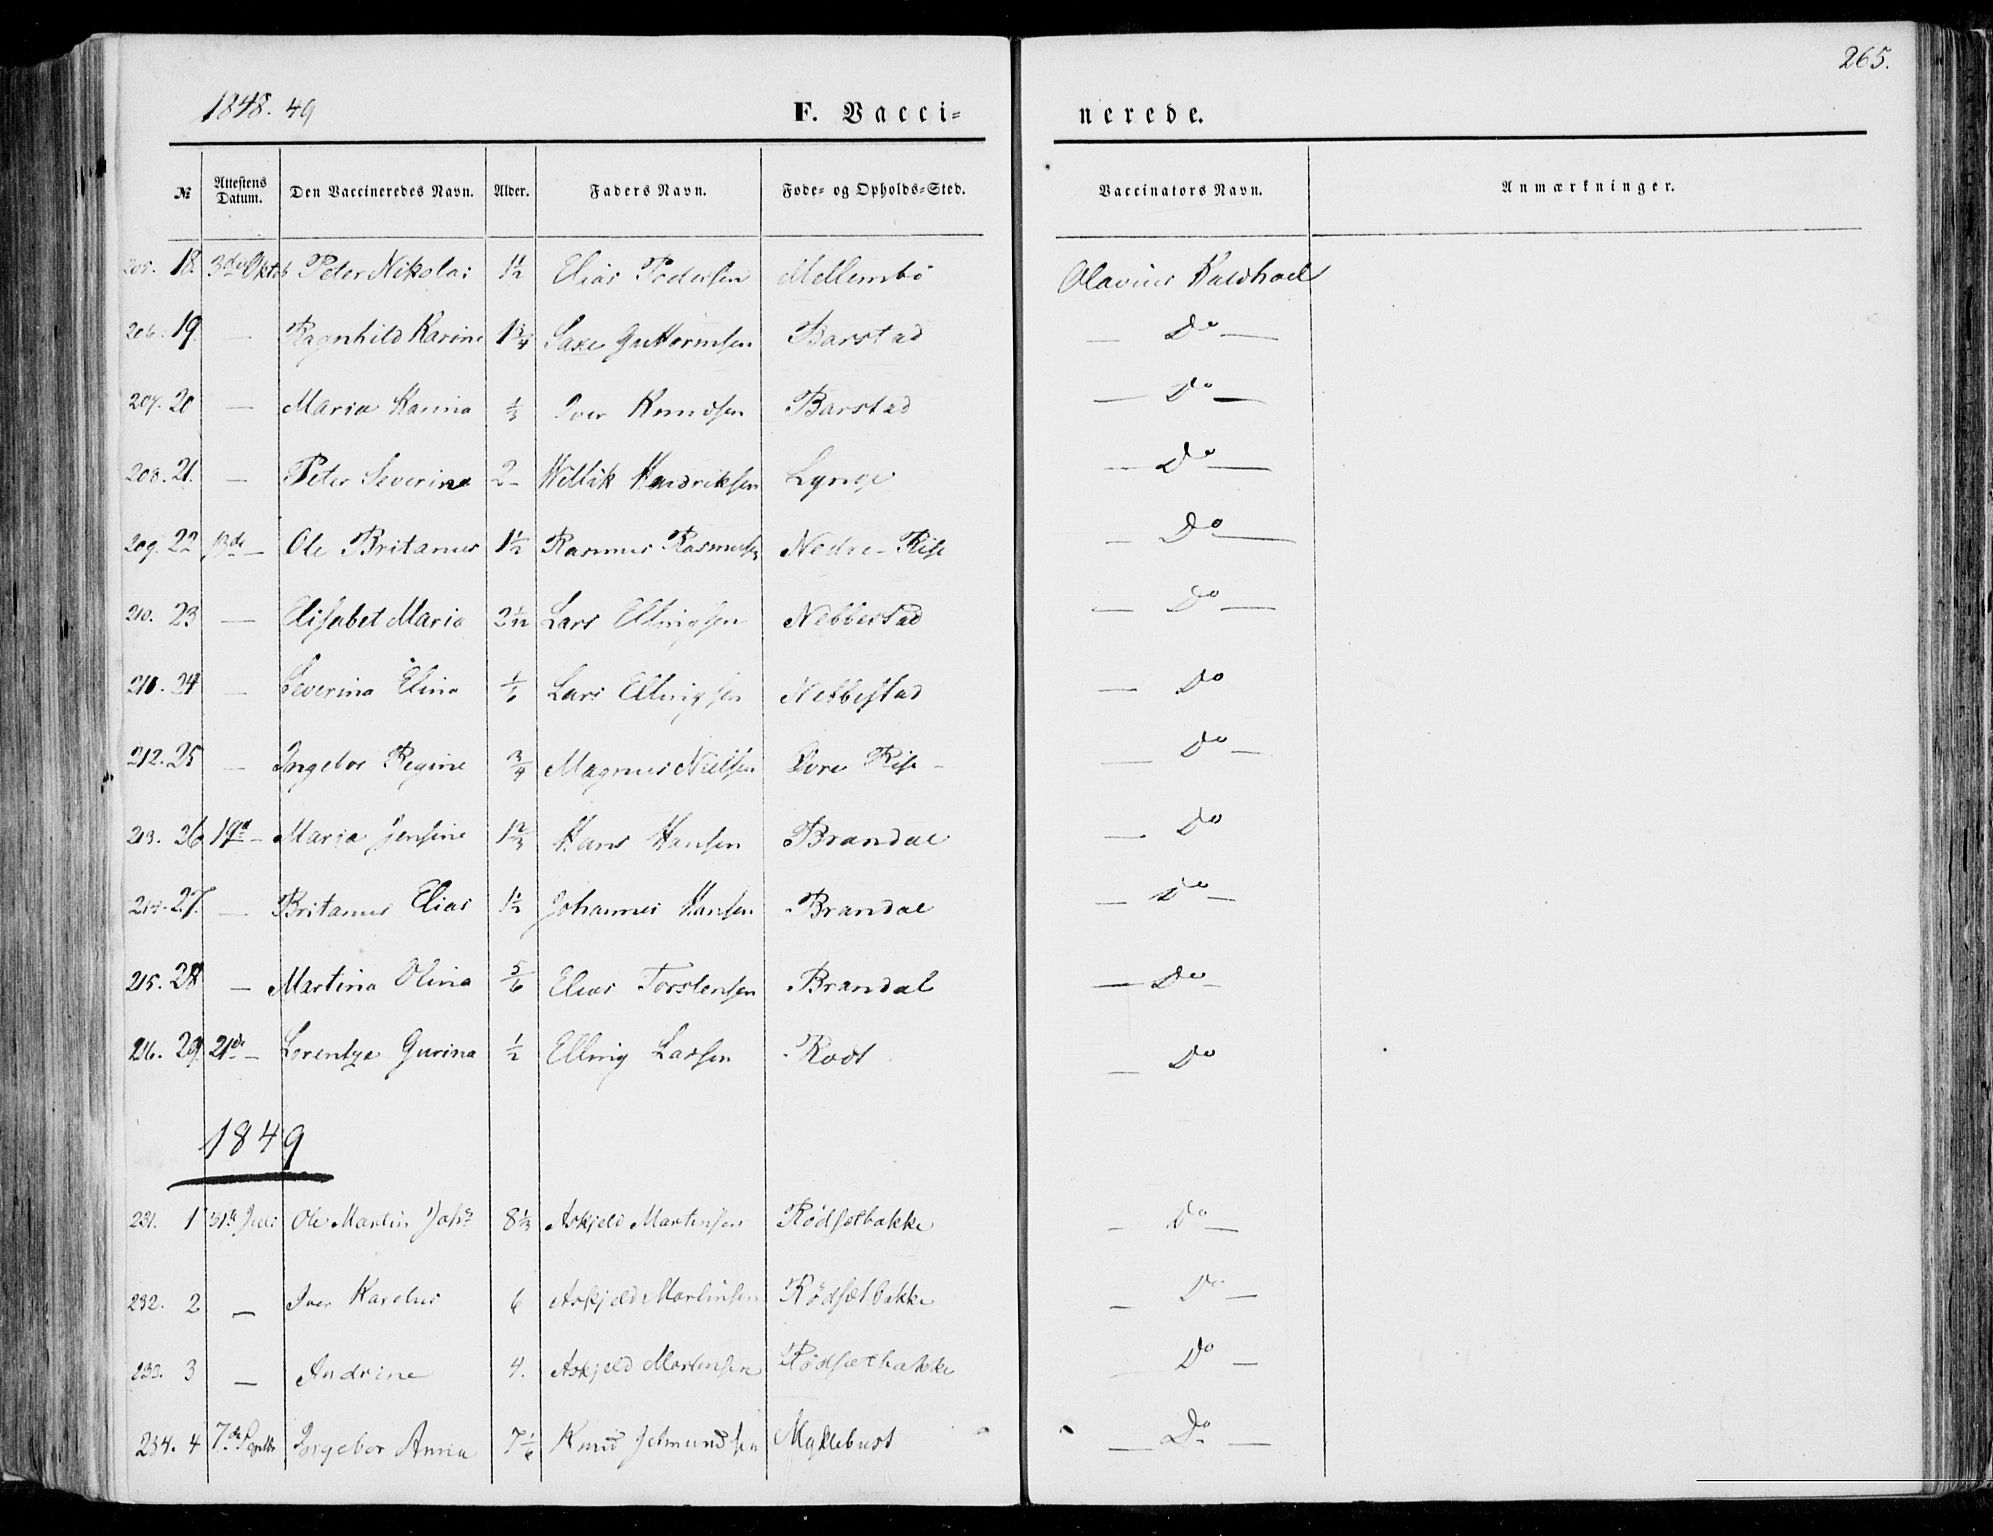 265.
1848. 49
F. Vacci=
nerede.
№ Attestens Datum. Den Vaccineredes Navn. Alder. Faders Navn. Føde= og Opholds=Sted. Vaccinators Navn. Anmærkninger.
205. 18. 3de Oktob Peter Nikolai 1½ Elias Pedersen Mellembö Olavius
206. 19. — Ragnhild Karine 1¾ Saxe Guttormsen Barstad — Do —
207. 20 — Maria Hanna ⅓ Iver Knudsen Barstad — Do —
208. 21. — Peter Severin 2 — Willik Hendriksen — Do —
209. 22 13de — Ole Britanus 1½ Rasmus Rasmusen Nedre-Rise — Do —
210. 23 — Elisabet Maria Lars Ellingsen Nebbestad — Do —
211. 24 — Severina Elina Lars Ellingsen Nebbestad — Do
212. 25 — Ingebor Regine ¾ Magnus Nielsen Övre Rise — — Do —
213. 26 19de — Maria Jensine 1⅔ Hans Hansen Brandal — Do
214. 27. — Britanus Elias 1½ Johannes Hansen Brandal — Do —
215. 28 — Martina Olina ⅚ Elias Torstensen Brandal — Do —
216. 29. 21de — Lorentze Gurina ½ Elling Larsen — Do
1849
231. 1 31te Juli Ole Martin Johs 8⅓ Askjeld Martinsen Rödsetbakke — Do —
232. 2 — Iver Karelus 6 Askjeld Martinsen Rødsetbakke — Do —
233. 3 — Andrine 4. Askjeld Martinsen Rödsetbakke Do —
234. 4 7de Septbr Ingebor Anna 7⅙ Knud Jetmundsen Myklebust — Do —